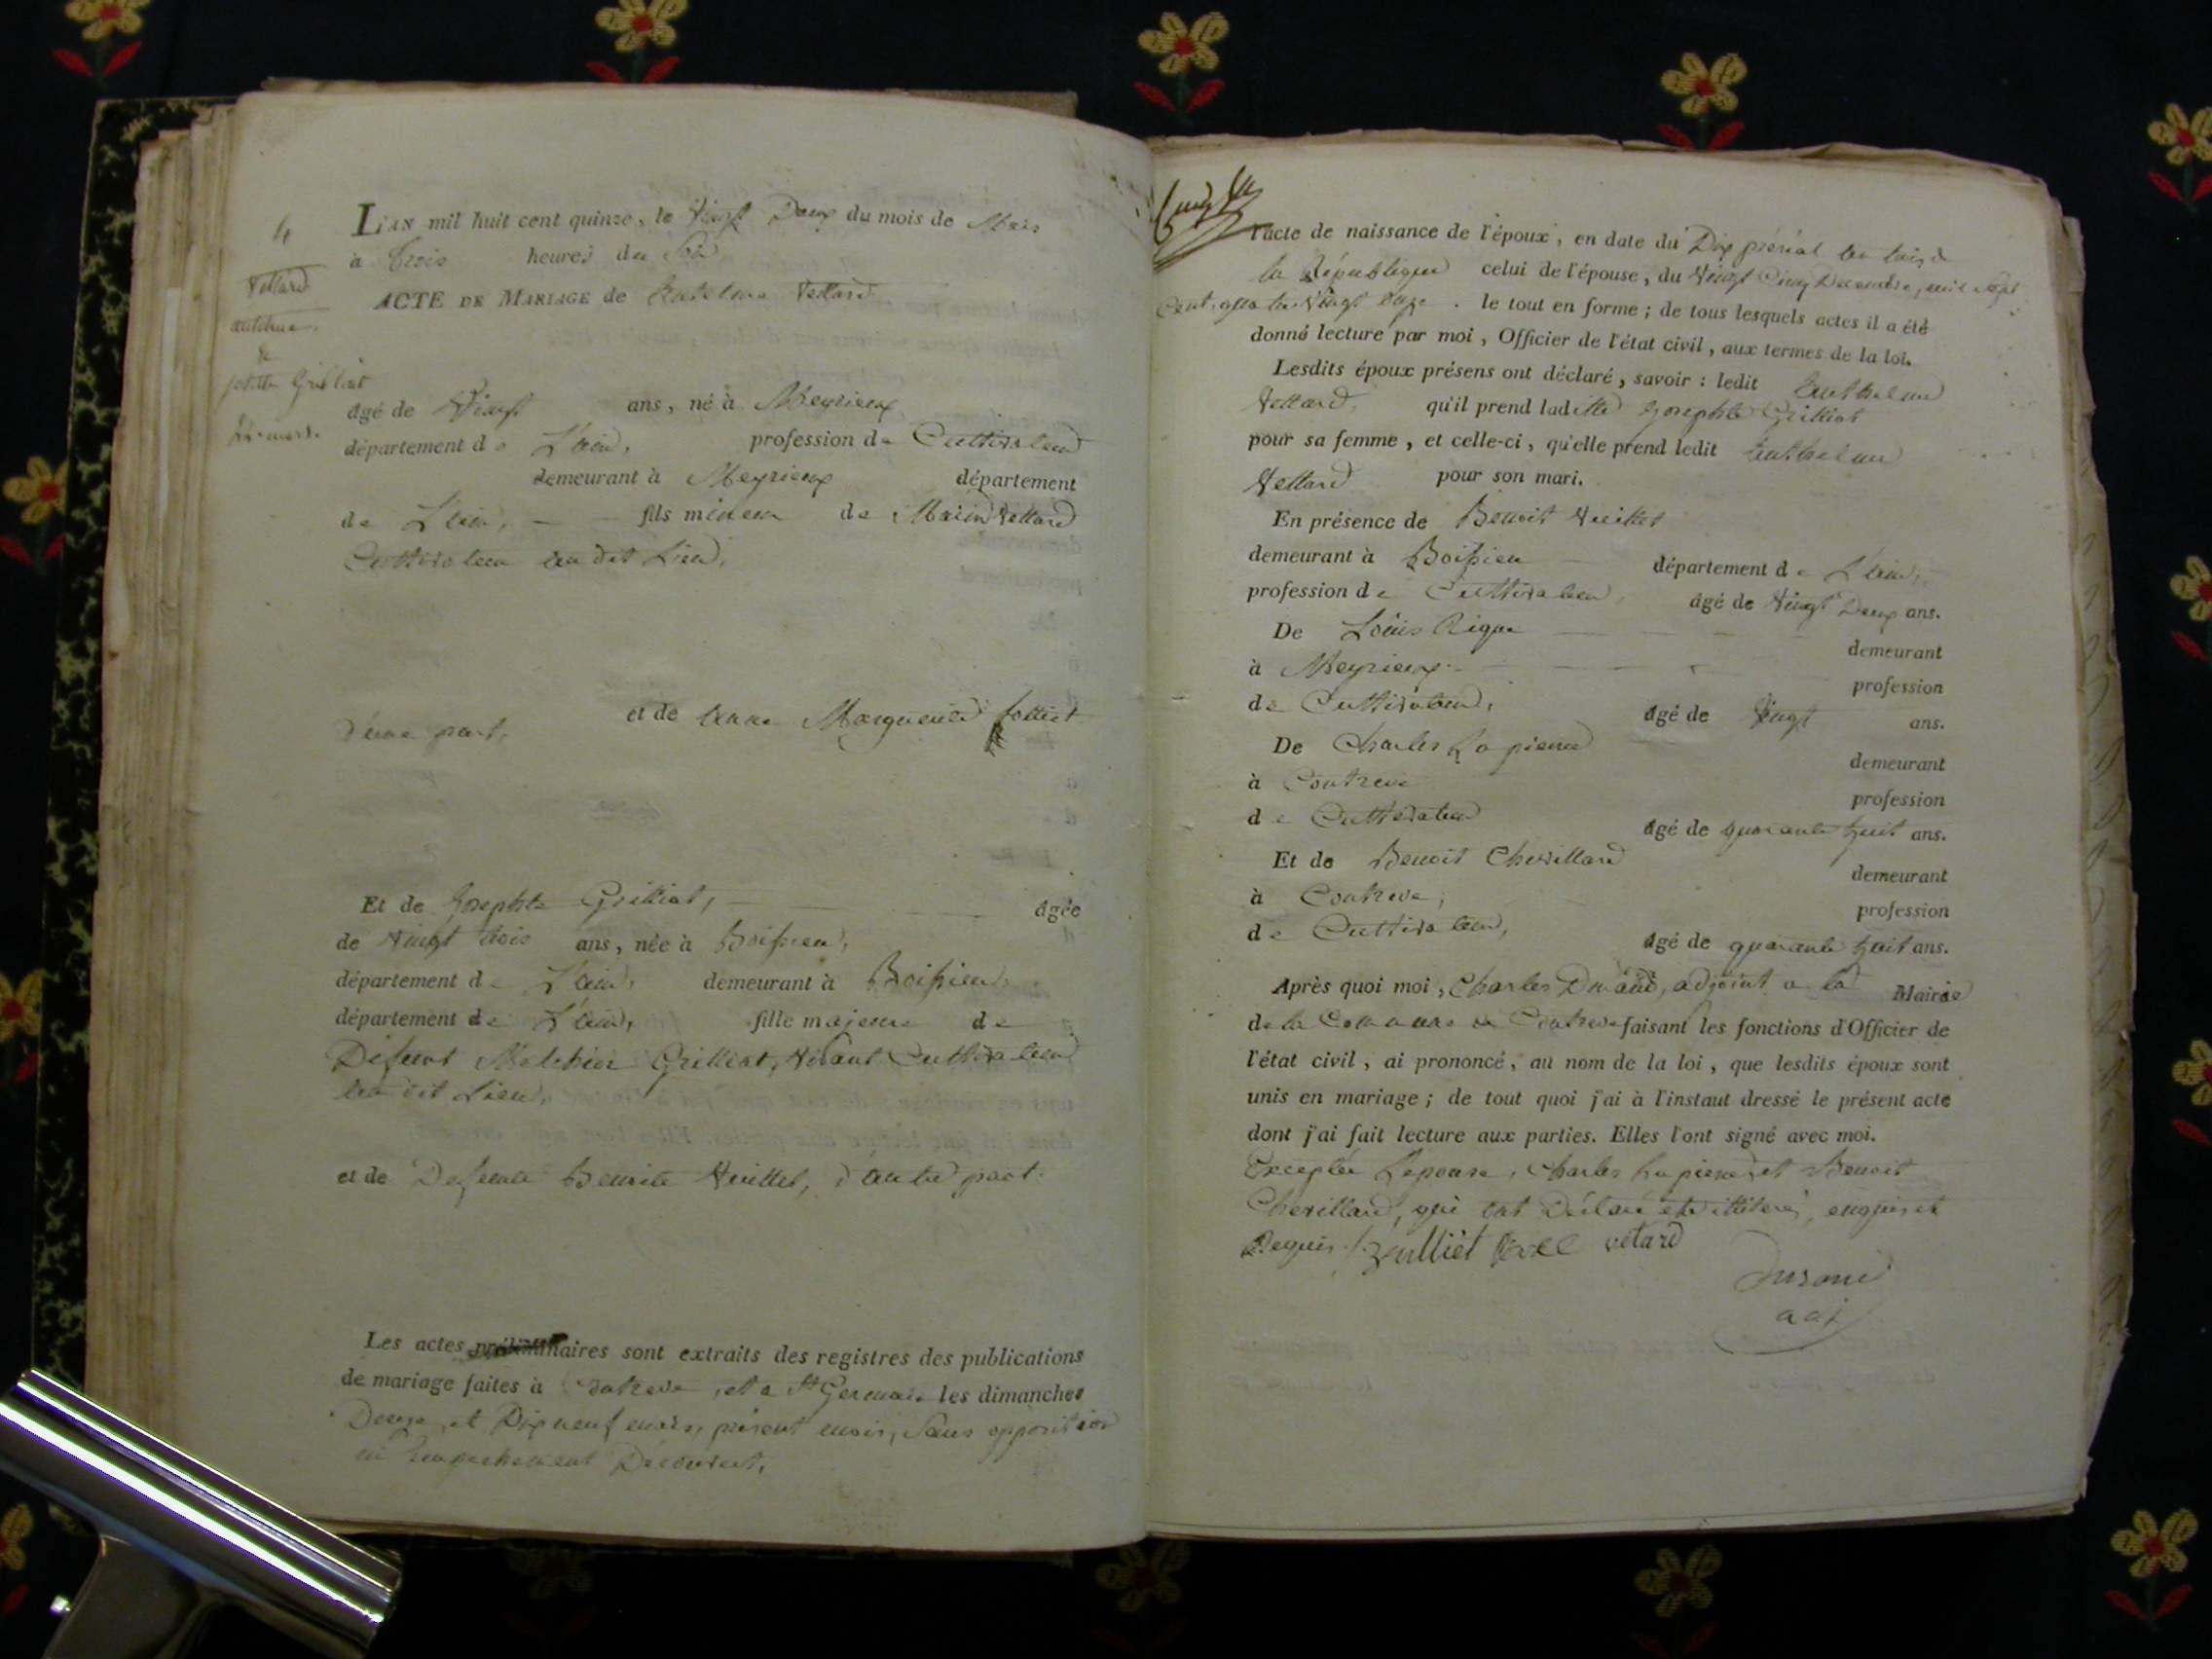 4
Vettard
anthelme
&
josette Grilliet
22 mars.
L'AN mil huit cent quinze, le Vingt Deux du mois de Mars
à trois heures du Soir
ACTE DE MARIAGE de Anthelme Vettard
âgé de Vingt ans, né à Meyrieux
département de L'ain, profession de Cultivateur
demeurant à Meyrieux département
de L'ain, fils mineur de Marin Vettard
Cultivateur au dit Lieu,
et de anne Marguerite
d'une part,
Et de Josephte Grilliet, âgée
de Vingt trois ans, née à Boissieu,
département de L'ain, demeurant à Boissieu,
département de L'ain, fille majeure de
Defunt Melchior Grilliet, vivant Cultivateur
au dit Lieu,
et de Defunte Benoite Vuillet, d'autre part.
Les actes préliminaires sont extraits des registres des publications
de mariage faites à Contrevo, et a St Germain les dimanches
Douze, et Dix neuf mars, présent mois, Sans opposition
ni Empechement Découvert,
l'acte de naissance de l'époux, en date du Dix prérial an trois de
la République celui de l'épouse, du Vingt Cinq Decembre, mil Sept
Cent quatre Vingt onze. le tout en forme; de tous lesquels actes il a été
donné lecture par moi, Officier de l'état civil, aux termes de la loi.
Lesdits époux présens ont déclaré, savoir: ledit Anthelme
Vettard, qu'il prend laditte Josephte Grilliet
pour sa femme, et celle-ci, qu'elle prend ledit Anthelme
Vettard pour son mari.
En présence de Benoit Vuillet
demeurant à Boissieu département de L'ain,
profession de Cultivateur, âgé de Vingt Deux ans.
De Louis Rigue demeurant
à Meyrieux profession
de Cultivateur, âgé de Vingt ans.
De Charles Lapierre demeurant
à Contrevo profession
de Cultivateur âgé de quarante huit ans.
Et de Benoit Chevillard demeurant
à Contrevo, profession
de Cultivateur, âgé de quarante huit ans.
Après quoi moi, Charles Durand, adjoint a la Mairie
de la Commune de Contrevo faisant les fonctions d'Officier de
l'état civil, ai prononcé, au nom de la loi, que lesdits époux sont
unis en mariage; de tout quoi j'ai à l'instant dressé le présent acte
dont j'ai fait lecture aux parties. Elles l'ont signé avec moi.
Exceptée L'epouse, Charles Lapierre et Benoit
Chevillard, qui ont Déclaré etre illiterés, enquis et
Requis. vetard
adj